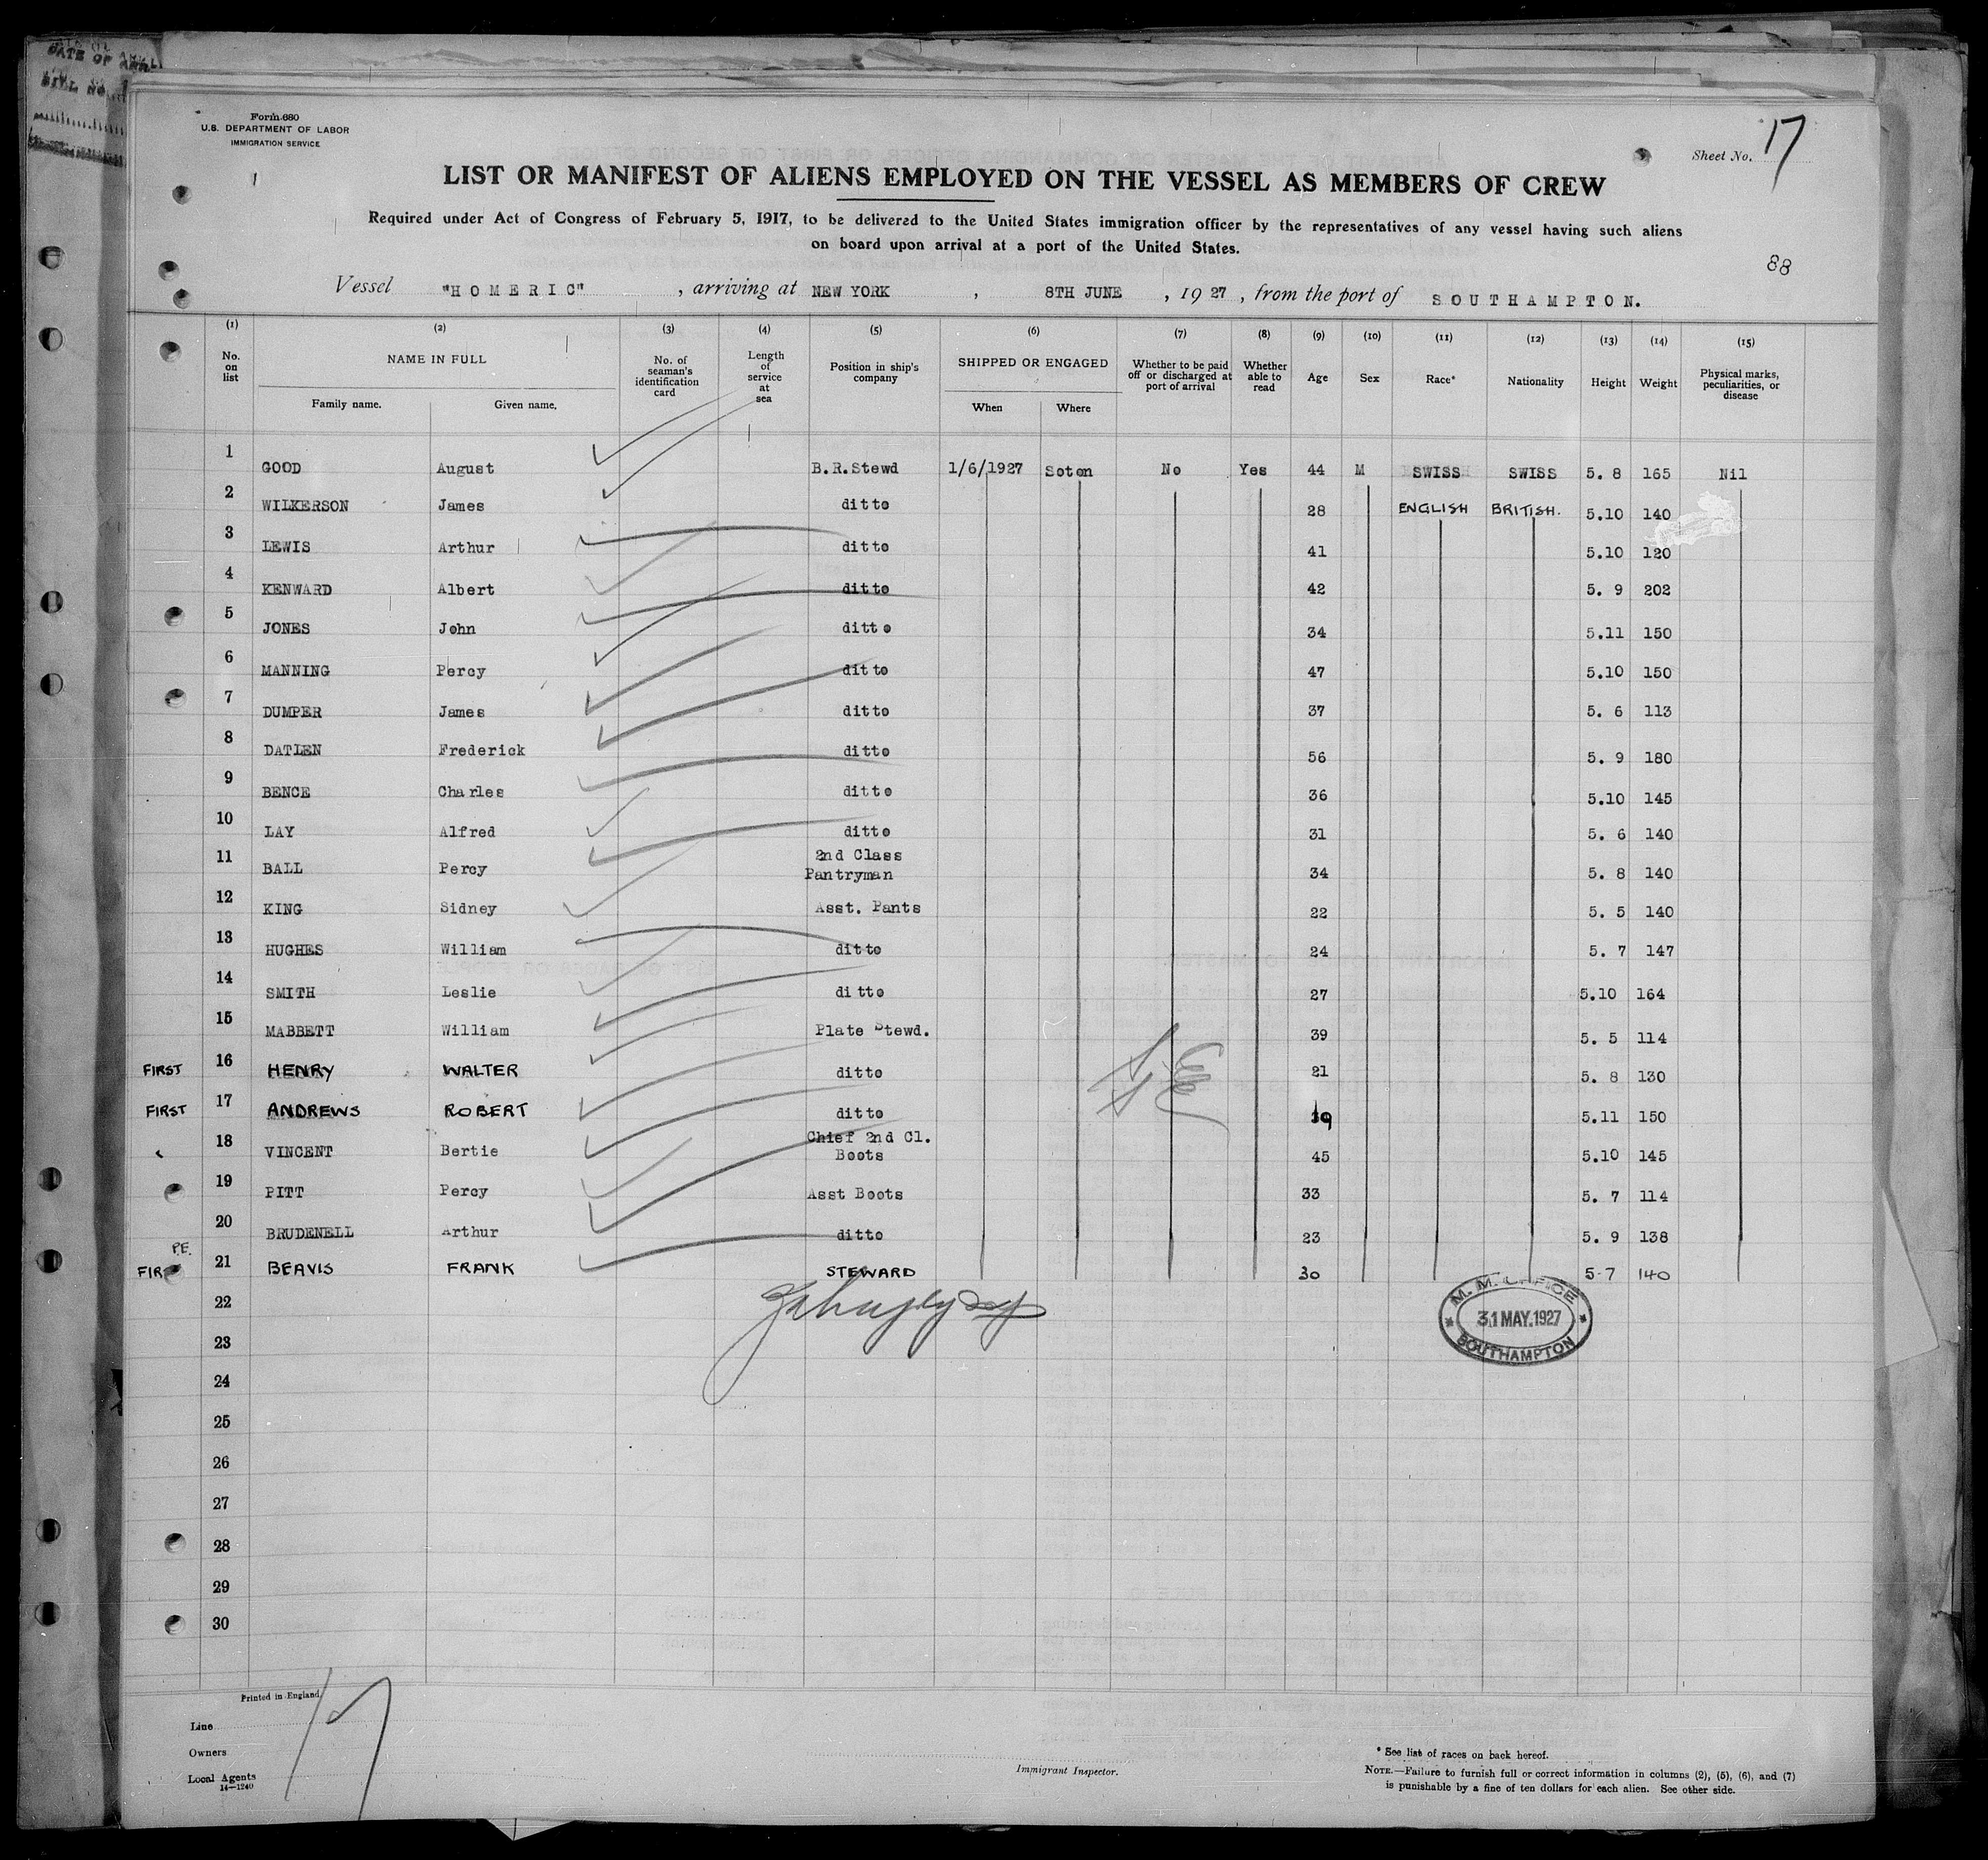 DATE OF
BILL NO.
Form 680
U.S. DEPARTMENT OF LABOR
IMMIGRATION SERVICE
Sheet No. 17
LIST OR MANIFEST OF ALIENS EMPLOYED ON THE VESSEL AS MEMBERS OF CREW
Required under Act of Congress of February 5, 1917, to be delivered to the United States immigration officer by the representatives of any vessel having such aliens
on board upon arrival at a port of the United States.
88
Vessel "HOMERIC", arriving at NEW YORK, 8TH JUNE, 1927, from the port of SOUTHAMPTON.
(1) (2) (3) (4) (5) (6) (7) (8) (9) (10) (11) (12) (13) (14) (15)
No. on list NAME IN FULL Family name. Given name. No. of seaman's identification card Length of service at sea Position in ship's company SHIPPED OR ENGAGED When Where Whether to be paid off or discharged at port of arrival Whether able to read Age Sex Race* Nationality Height Weight Physical marks, peculiarities, or disease
1 GOOD August B.R.Stewd 1/6/1927 Soton No Yes 44 M SWISS SWISS 5. 8 165 Nil
2 WILKERSON James ditto 28 ENGLISH BRITISH. 5.10 140
3 LEWIS Arthur ditto 41 5.10 120
4 KENWARD Albert ditto 42 5. 9 202
5 JONES John ditto 34 5.11 150
6 MANNING Percy ditto 47 5.10 150
7 DUMPER James ditto 37 5. 6 113
8 DATLEN Frederick ditto 56 5. 9 180
9 BENCE Charles ditto 36 5.10 145
10 LAY Alfred ditto 31 5. 6 140
11 BALL Percy 2nd Class Pantryman 34 5. 8 140
12 KING Sidney Asst. Pants 22 5. 5 140
13 HUGHES William ditto 24 5. 7 147
14 SMITH Leslie ditto 27 5.10 164
15 MABBETT William Plate Stewd. 39 5. 5 114
FIRST 16 HENRY WALTER ditto 21 5. 8 130
FIRST 17 ANDREWS ROBERT ditto 39 5.11 150
18 VINCENT Bertie Chief 2nd Cl. Boots 45 5.10 145
19 PITT Percy Asst Boots 33 5. 7 114
20 BRUDENELL Arthur ditto 23 5. 9 138
P.E.
21 BEAVIS FRANK STEWARD 30 5-7 140
22
23
24
25
26
27
28
29
30
M. M. OFFICE
31 MAY.1927
SOUTHAMPTON
Printed in England
17
Line
Owners
Local Agents
14—1240
Immigrant Inspector.
* See list of races on back hereof.
NOTE.—Failure to furnish full or correct information in columns (2), (5), (6), and (7)
is punishable by a fine of ten dollars for each alien. See other side.